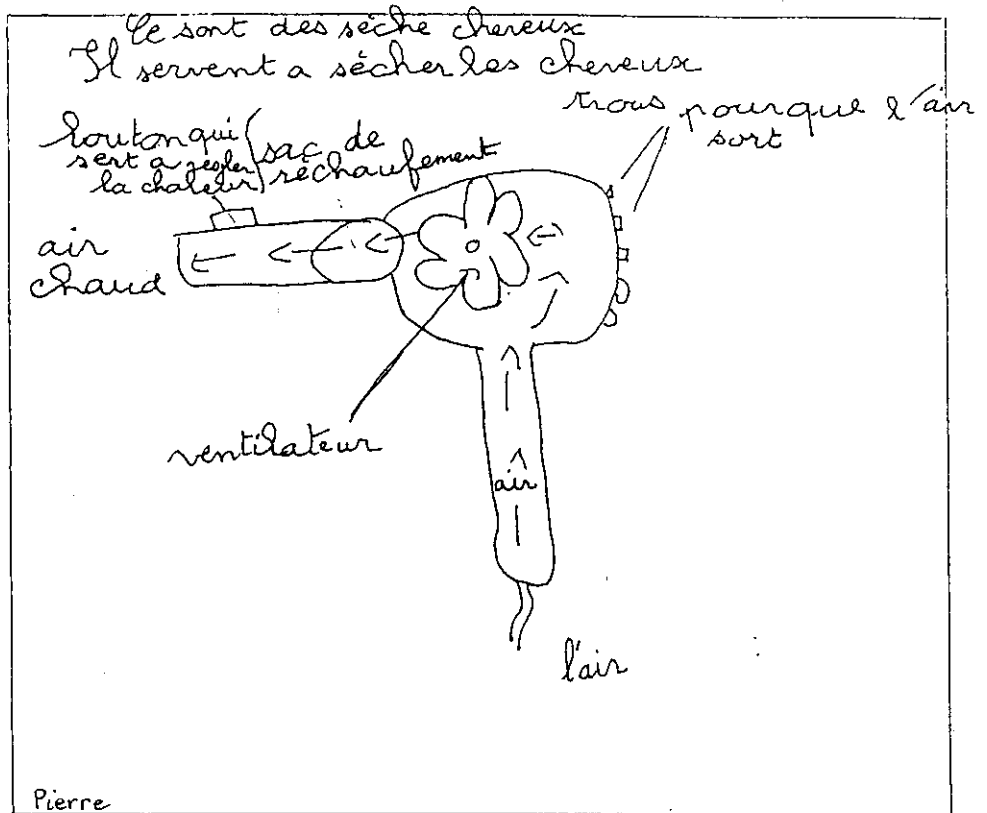 Ce sont des sèche cheveux
Il servent a sécher les cheveux
trous pourque l'air
sort
bouton qui
sert a regler
la chaleur
sac de
réchaufement
air
chaud
ventilateur
air
l'air
Pierre